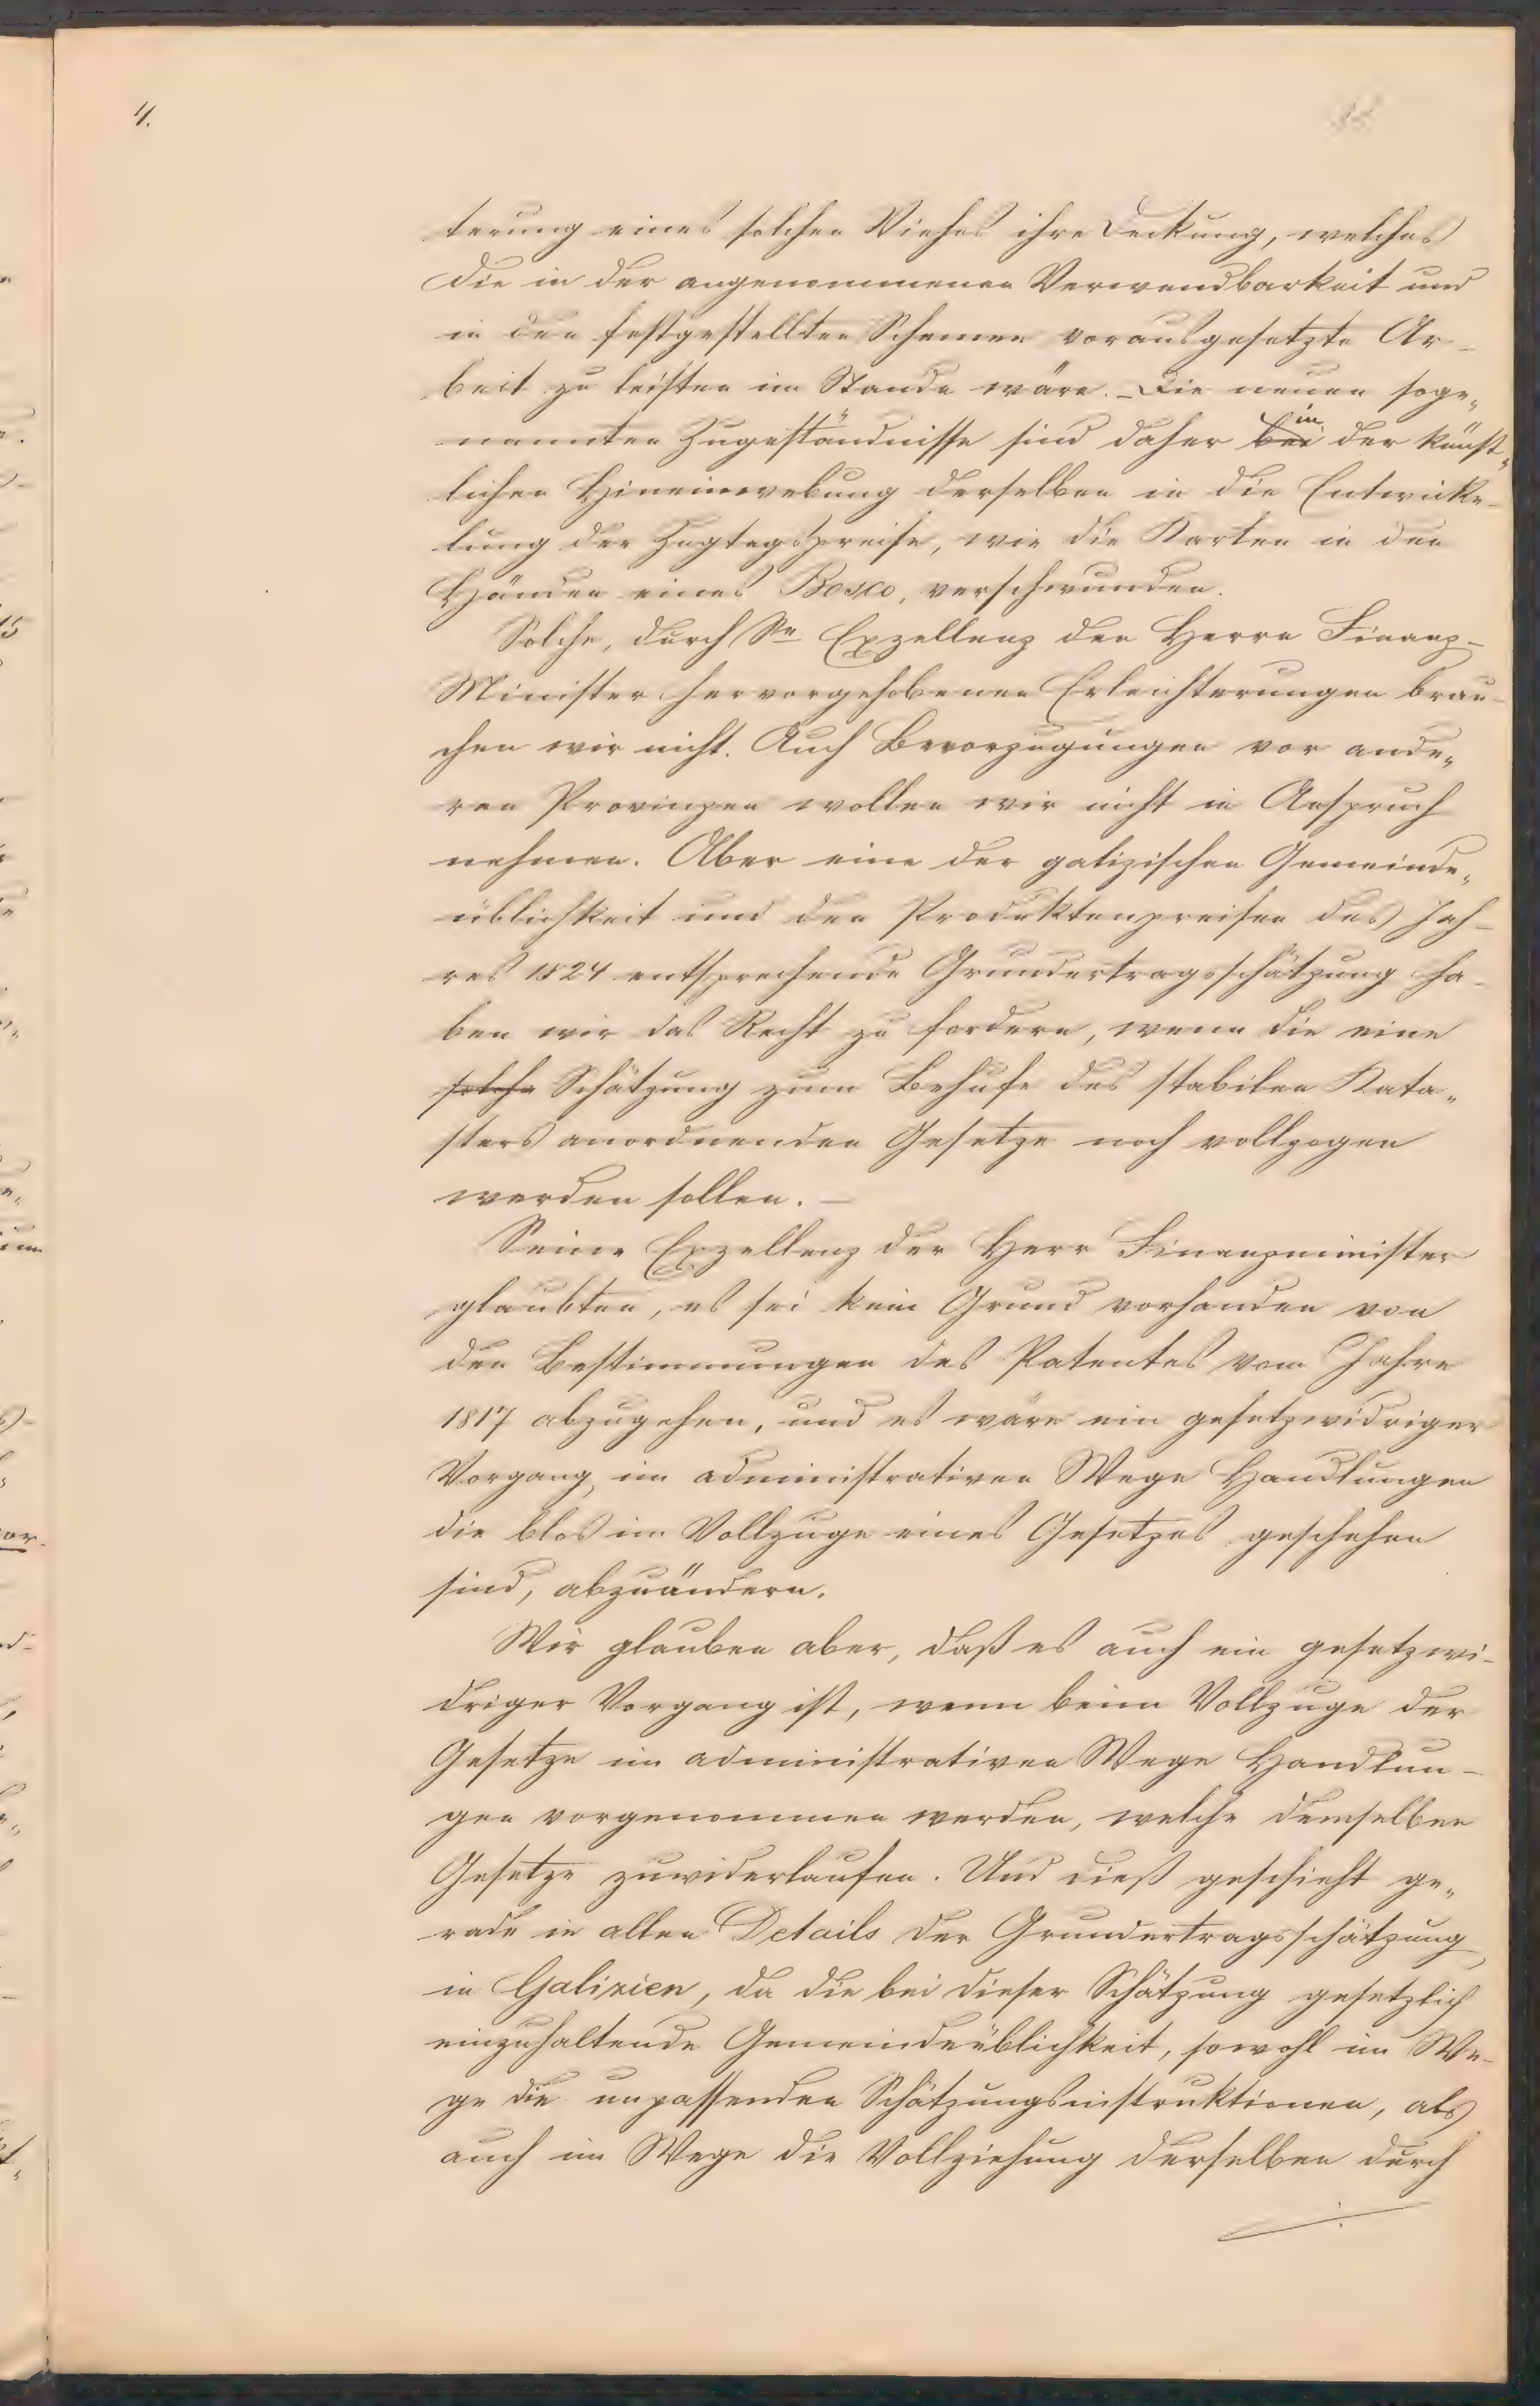 4.
terung eines solchen Viehes ihre Deckung, welches
die in der angenommenen Verwendbarkeit und
in den festgestellten Schemen vorausgesetzte Ar-
beit zu leisten im Stande wäre. – Die neuen soge„
nannten Zugeständnisse sind daher bei in der künst„
lichen Hineinwebung derselben in die Entwicke-
lung der Zugtagspreise, wie die Karten in den
Händen eines Bosco, verschwunden.
Solche, durch Se Exzellenz den Herrn Finanz-
Minister hervorgehobenen Erleichterungen brau-
chen wir nicht. Auch Bevorzugungen vor ande„
ren Provinzen wollen wir nicht in Anspruch
nehmen. Aber eine der galizischen Gemeinde„
üblichkeit und den Produktenpreisen des Jah-
res 1824 entsprechende Grundertragsschätzung ha-
ben wir das Recht zu fordern, wenn die eine
solche Schätzung zum Behufe des stabilen Kata„
sters anordnenden Gesetze noch vollzogen
werden sollen. –
Seine Exzellenz der Herr Finanzminister
glaubten, es sei kein Grund vorhanden von
den Bestimmungen des Patentes vom Jahre
1817 abzugehen, und es wäre ein gesetzwidriger
Vorgang, im administrativen Wege Handlungen
die blos im Vollzuge eines Gesetzes geschehen
sind, abzuändern.
Wir glauben aber, daß es auch ein gesetzwi-
driger Vorgang ist, wenn beim Vollzuge der
Gesetze im administrativen Wege Handlun-
gen vorgenommen werden, welche demselben
Gesetze zuwiderlaufen. Und dieß geschieht ge„
rade in allen Details der Grundertragsschätzung
in Galizien, da die bei dieser Schätzung gesetzlich
einzuhaltende Gemeindeüblichkeit, sowohl im We-
ge die unpassenden Schätzungsinstruktionen, als
auch im Wege die Vollziehung derselben durch